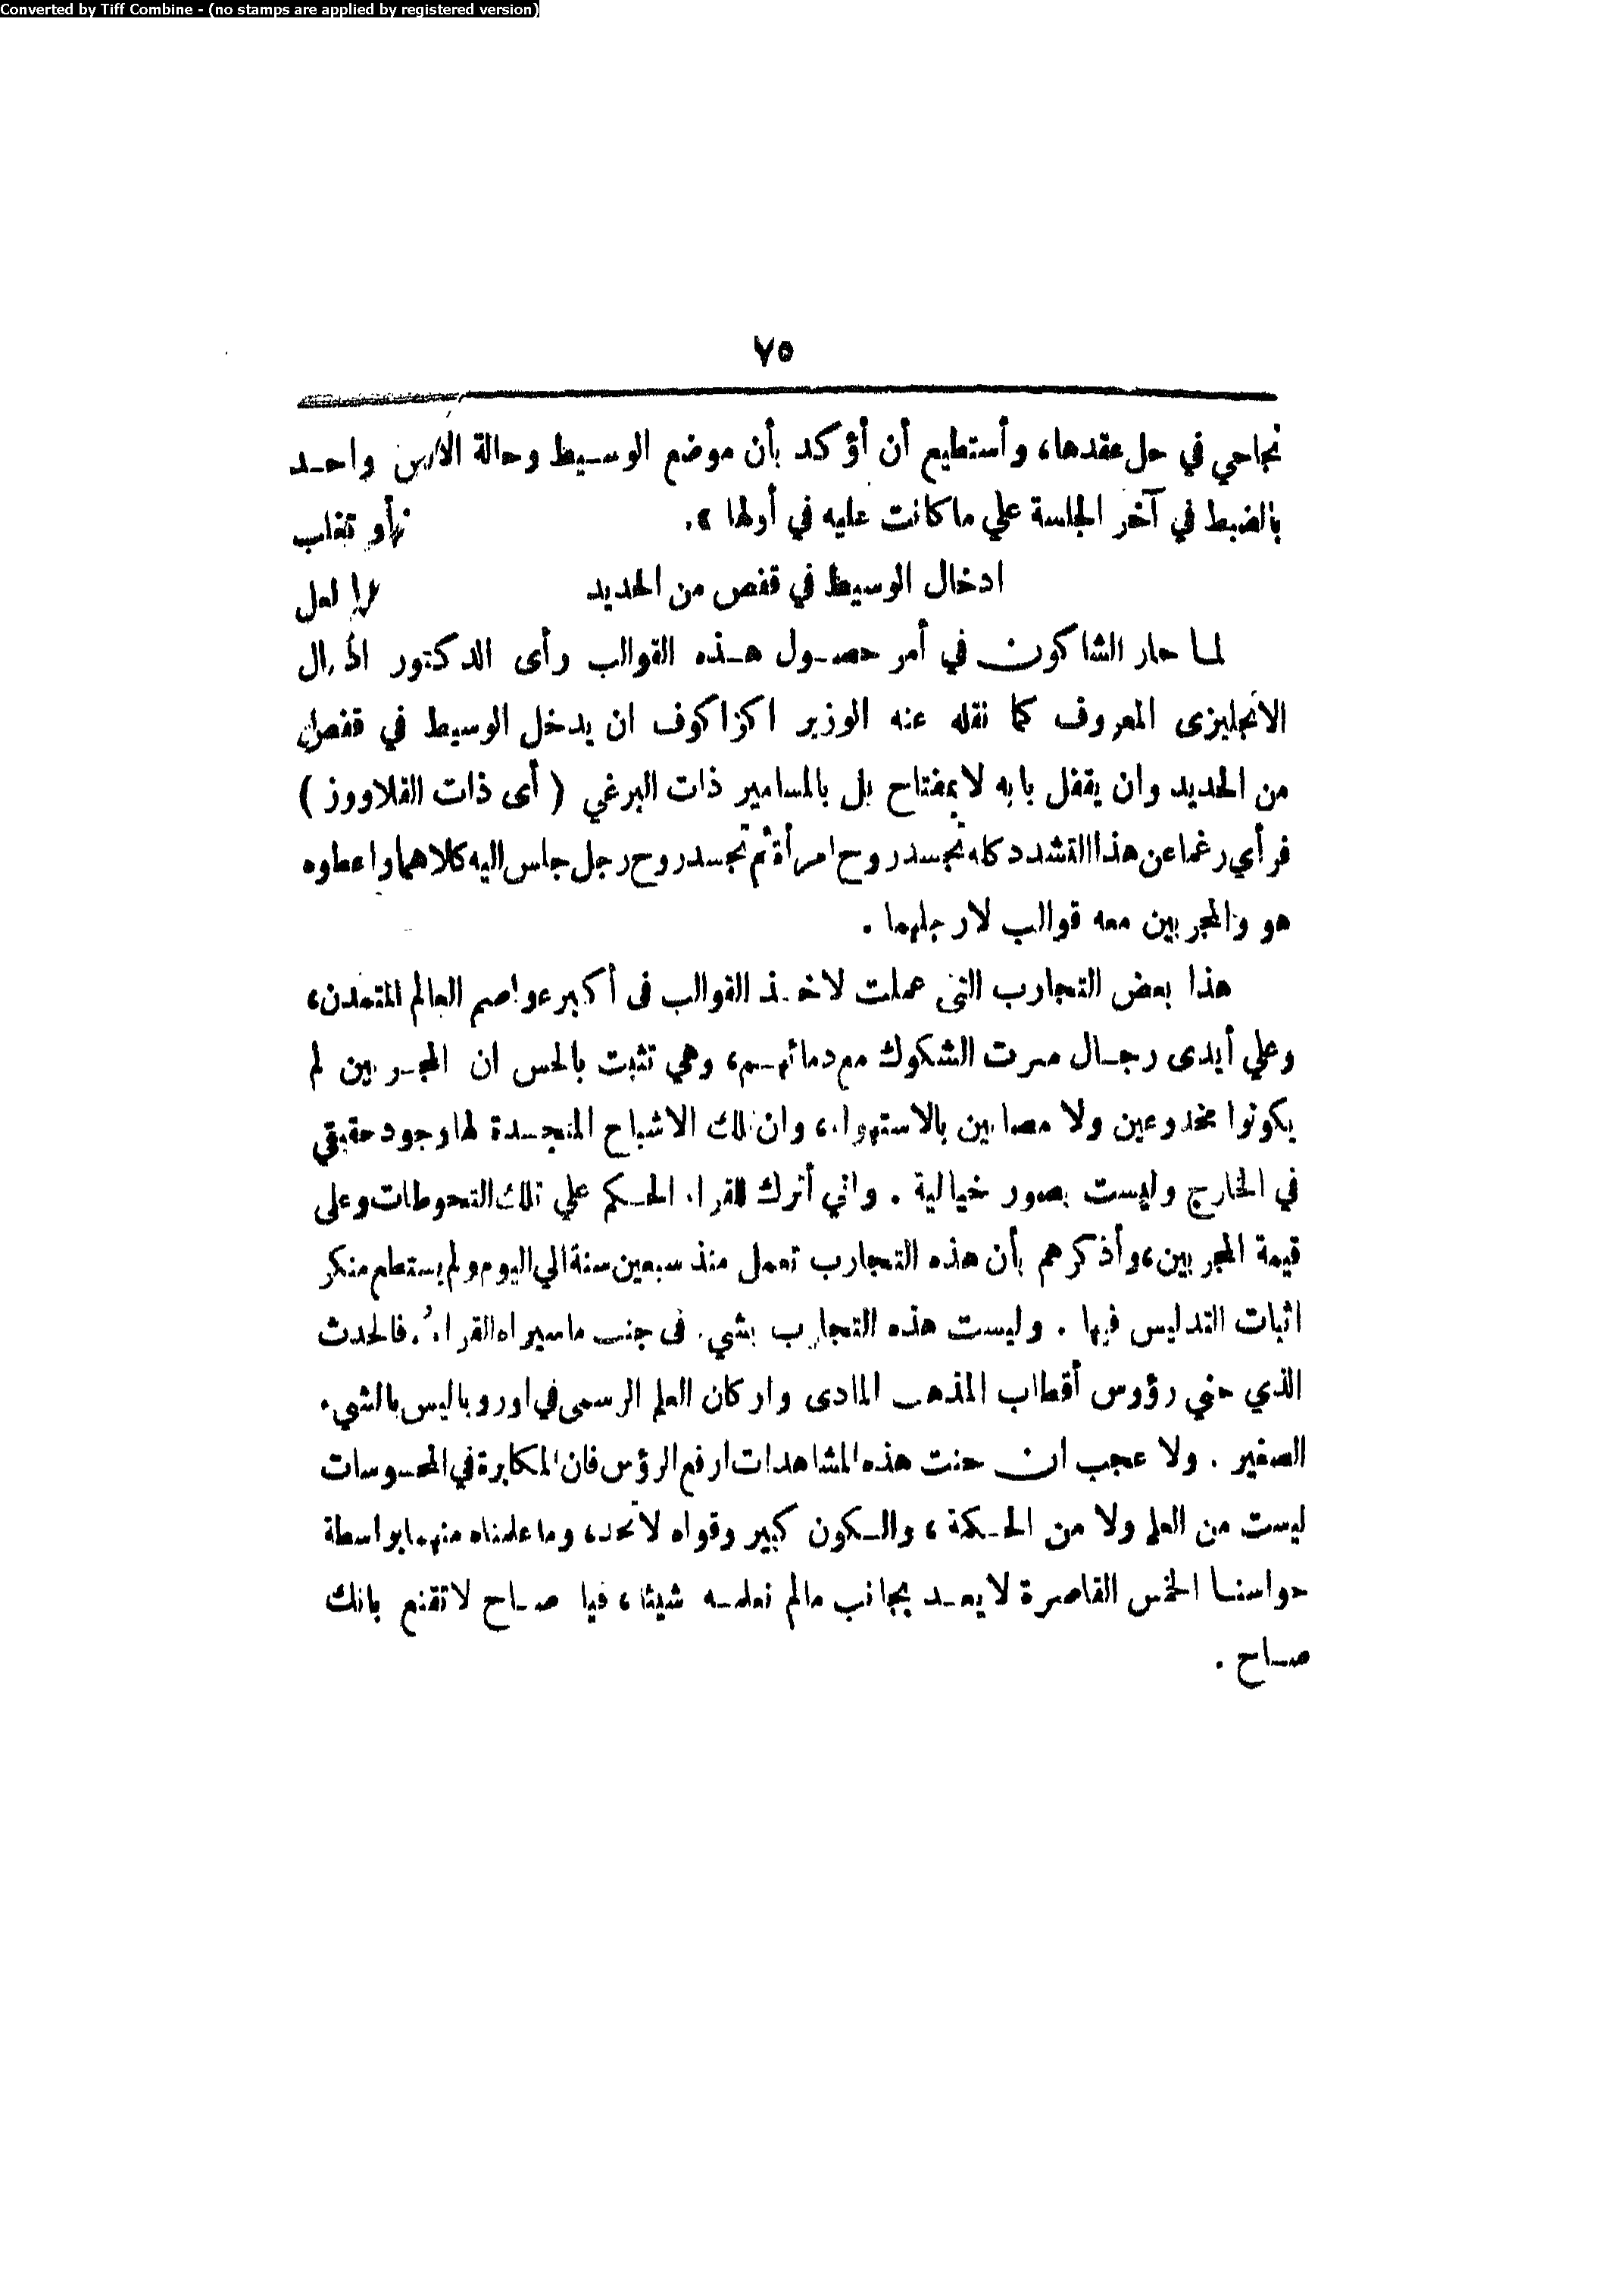 Converted by Tiff Combine - (no stamps are applied by registered version)
٧٥
نجاحي في حل عقدها، وأستطيع أن أؤكد بأن موضع الوسيط وحالة واحد
بالضبط في آخر الجلسة علي ما كانت عليه في أولها ».
ادخال الوسيط في قفص من الحديد
لما حار الشاكون في أمر حصول هذه القوالب رأى الدكتور
الانجليزى المعروف كما نقله عنه الوزير اكزاكوف ان يدخل الوسيط في قفص
من الحديد وان يقفل بابه لا بمفتاح بل بالمسامير ذات البرغي ( أى ذات القلاووز )
فرأي رغما عن هذا التشدد كله تجسد روح امرأة ثم تجسد روح رجل جلس اليه كلاهما واعطوه
هو والمجربين معه قوالب لارجلهما .
هذا بعض التجارب التى عملت لاخذ القوالب فى أكبر عواصم العالم المتمدن،
وعلي أيدى رجال سرت الشكوك مع دمائهم، وهي تثبت بالحس ان المجربين لم
يكونوا مخدوعين ولا مصابين بالاستهواء، وان تلك الاشباح المتجسدة لها وجود حقيقي
في الخارج وليست بصور خيالية . واني أترك للقراء الحكم علي تلك التحوطات وعلى
قيمة المجربين، وأذكرهم بأن هذه التجارب تعمل منذ سبعين سنة الي اليوم ولم يستطع منكر
اثبات التدليس فيها . وليست هذه التجارب بشيء فى جنب ما سيراه القراء . فالحدث
الذي حني رؤوس أقطاب المذهب المادى واركان العلم الرسمى في اوروبا ليس بالشيء
الصغير . ولا عجب ان حنت هذه المشاهدات ارفع الرؤس فان المكابرة في المحسوسات
ليست من العلم ولا من الحكمة ، والكون كبير وقواه لا تحد، وما علمناه منها بواسطة
حواسنا الخمس القاصرة لا يعد بجانب مالم نعلمه شيئا، فيا صاح لا تقنع بانك
صاح .